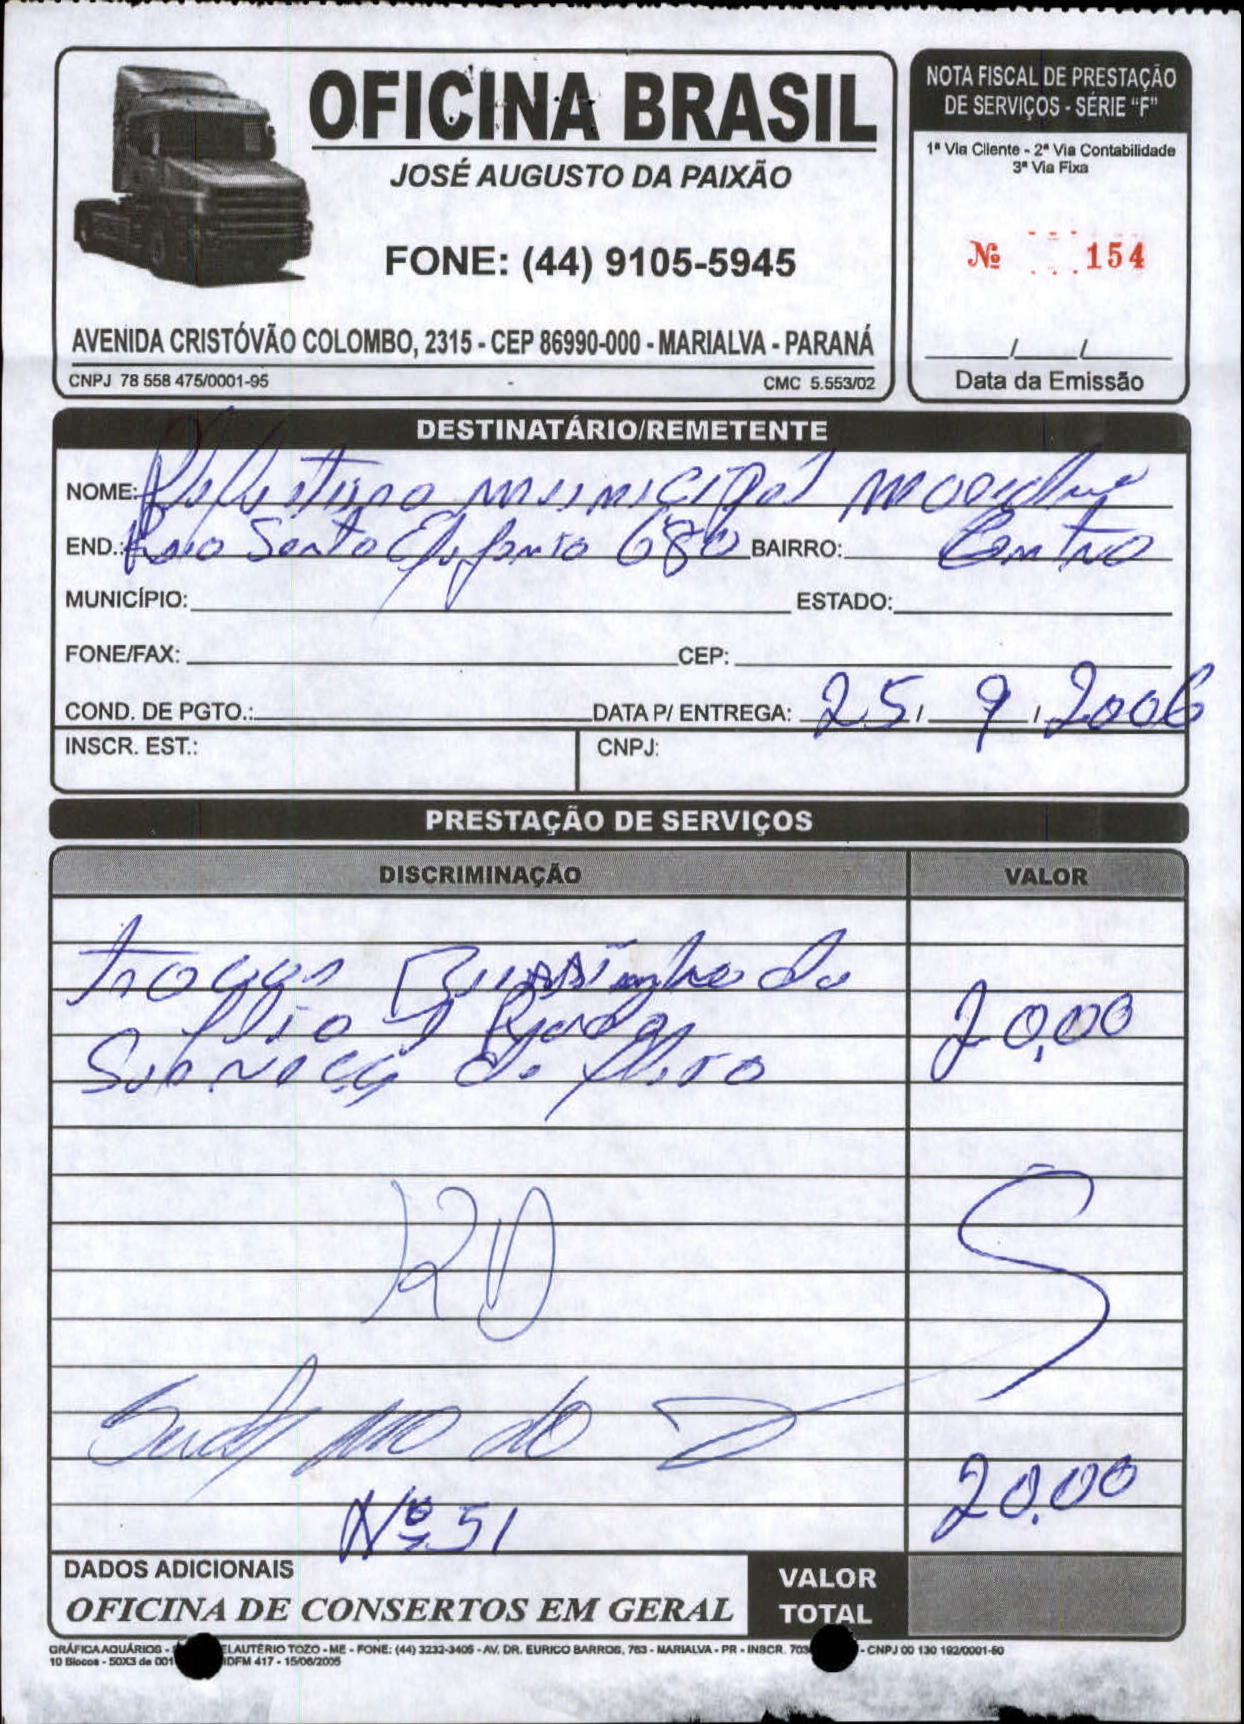 OFICINA BRASIL
JOSÉ AUGUSTO DA PAIXÃO
FONE: (44) 9105-5945
AVENIDA CRISTÓVÃO COLOMBO, 2315 - CEP 86990-000 - MARIALVA - PARANÁ
CNPJ 78 558 475/0001-95 CMC 5.553/02
NOTA FISCAL DE PRESTAÇÃO
DE SERVIÇOS - SÉRIE “F”
1ª Via Cliente - 2ª Via Contabilidade
3ª Via Fixa
Nº 154
__/__/__
Data da Emissão
DESTINATÁRIO/REMETENTE
NOME: municipal
END.: 680 BAIRRO: Centro
MUNICÍPIO: ESTADO:
FONE/FAX: CEP:
COND. DE PGTO.: DATA P/ ENTREGA: 25 / 9 / 2006
INSCR. EST.: CNPJ:
PRESTAÇÃO DE SERVIÇOS
DISCRIMINAÇÃO VALOR
20,00
Nº 51
20,00
DADOS ADICIONAIS
OFICINA DE CONSERTOS EM GERAL
VALOR
TOTAL
GRÁFICA AQUÁRIOS - ELAUTÉRIO TOZO - ME - FONE: (44) 3232-3405 - AV. DR. EURICO BARROS, 763 - MARIALVA - PR - INSCR. 703 - CNPJ 00 130 192/0001-50
10 Blocos - 50X3 de 001 IDFM 417 - 15/06/2005